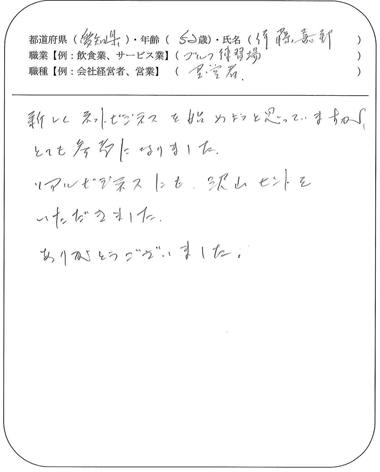 都道府県(愛知県)・年齢(52歳)・氏名(伊藤 )
職業【例：飲食業、サービス業】(ゴルフ練習場)
職種【例：会社経営者、営業】(経営者.)
新しくネットビジネスを始めようと思っていますが、
とても参考になりました.
リアルビジネスにも、沢山ヒントを
いただきました.
ありがとうございました。